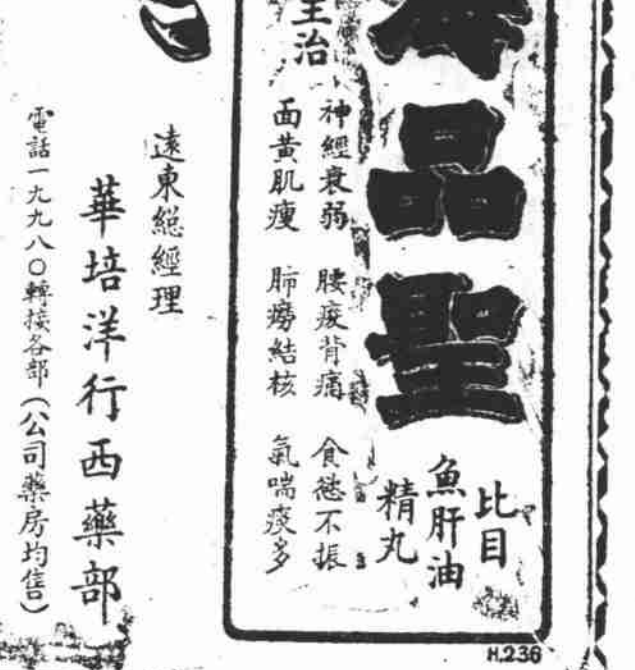 品聖
比目
魚肝油
精丸
主治
神經衰弱 腰痠背痛 食慾不振
面黃肌瘦 肺癆結核 氣喘痰多
遠東總經理
華培洋行西藥部
電話一九九八〇轉接各部(公司藥房均售)
H.236